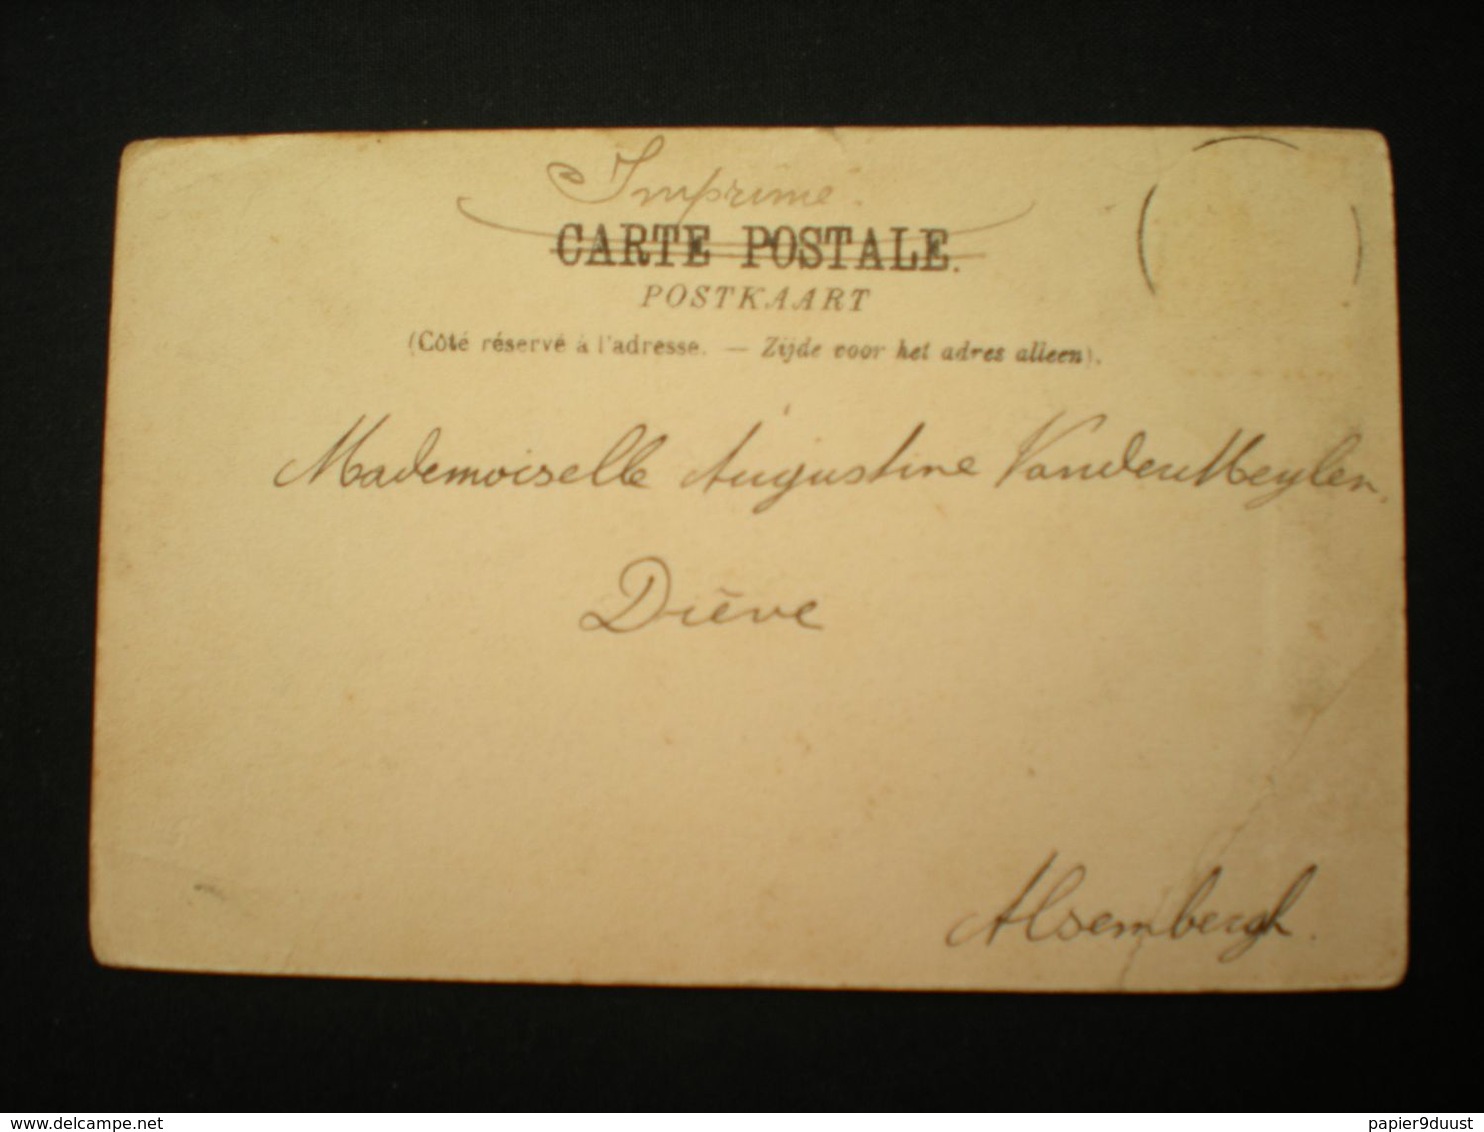 Imprimé.
CARTE POSTALE.
POSTKAART
(Côté réservé à l'adresse. — Zijde voor het adres alleen).
Mademoiselle Augustine VanderMeylen.
Diève
Alsembergh.
delcampe.net
papier9duust